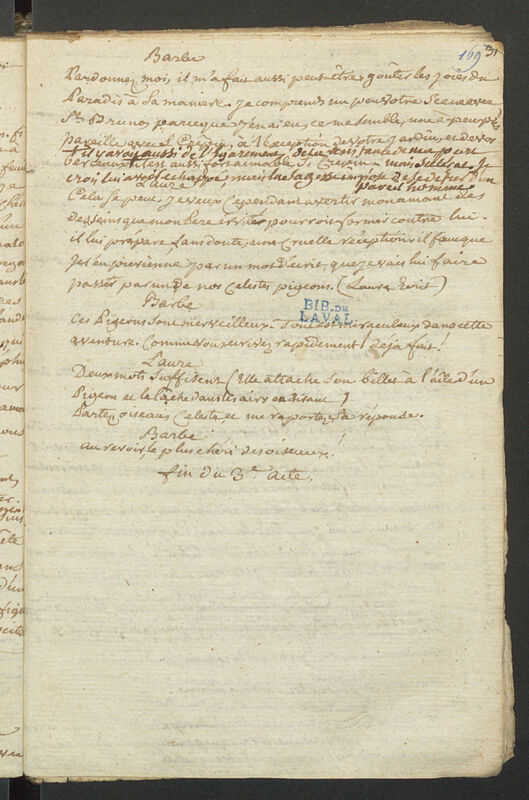 169 31
Barbe
Pardonnez moi, il m'a fait aussi peut-être goûter les joies du
Paradis à sa maniere. je comprends un peu votre Scene avec
St. Bruno, parceque j'en ai eu, ce me semble, une à peu près
pareille avec St. Crepin, à l'exception de votre Jardin, et de vos
il y avoit aussi de l'égarement de la part de
aussi aimable St Crepin
crois lui avoir échappé, mais la sagesse de se défier d'un
pareil homme.
Laure
Cela se peut. je veux cependant avertir mon amant des
desseins que mon Pere irrité pourroit former contre lui.
il lui prépare sans doute, une cruelle réception. il faut que
je l'en previenne par un mot d'écrit, que je vais lui faire
passer par un de nos celestes pigeons. (Laure écrit)
Barbe
BIB. DE
LAVAL
Ces Pigeons sont merveilleux. Tout est miraculeux dans cette
aventure. Comme vous ecrivez rapidement! deja fait!
Laure
Deux mots suffisent (Elle attache son billet à l'aile d'un
Pigeon et le lâche dans les airs en disant)
Partez, oiseau Celeste, et me raportez sa réponse.
Barbe
au revoir, le plus chéri des oiseaux!
fin du 3e. acte.